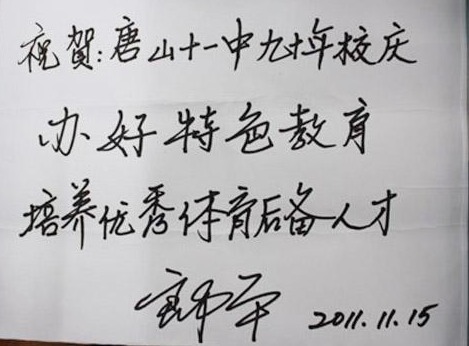 祝賀:唐山十一中九十年校庆
办好特色教育
培养优秀体育后备人才
2011.11.15